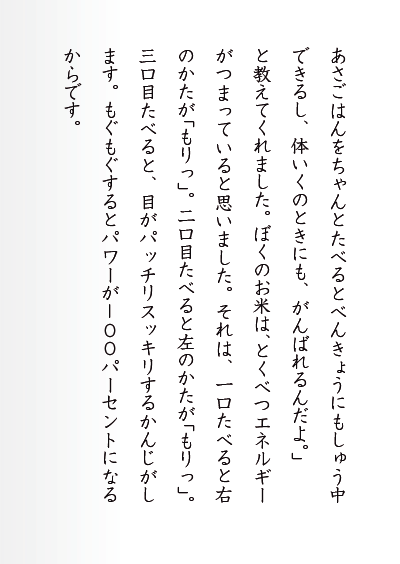 あさごはんをちゃんとたべるとべんきょうにもしゅう中
できるし、体いくのときにも、がんばれるんだよ。」
と教えてくれました。ぼくのお米は、とくべつエネルギー
がつまっていると思いました。それは、一口たべると右
のかたが「もりっ」。二口目たべると左のかたが「もりっ」。
三口目たべると、目がパッチリスッキリするかんじがし
ます。もぐもぐするとパワーが一〇〇パーセントになる
からです。